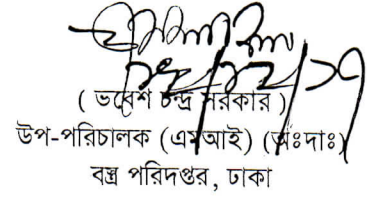 ( ভবেশ চন্দ্র সরকার )
উপ-পরিচালক (এমআই) (অঃদাঃ)
বস্ত্র পরিদপ্তর, ঢাকা